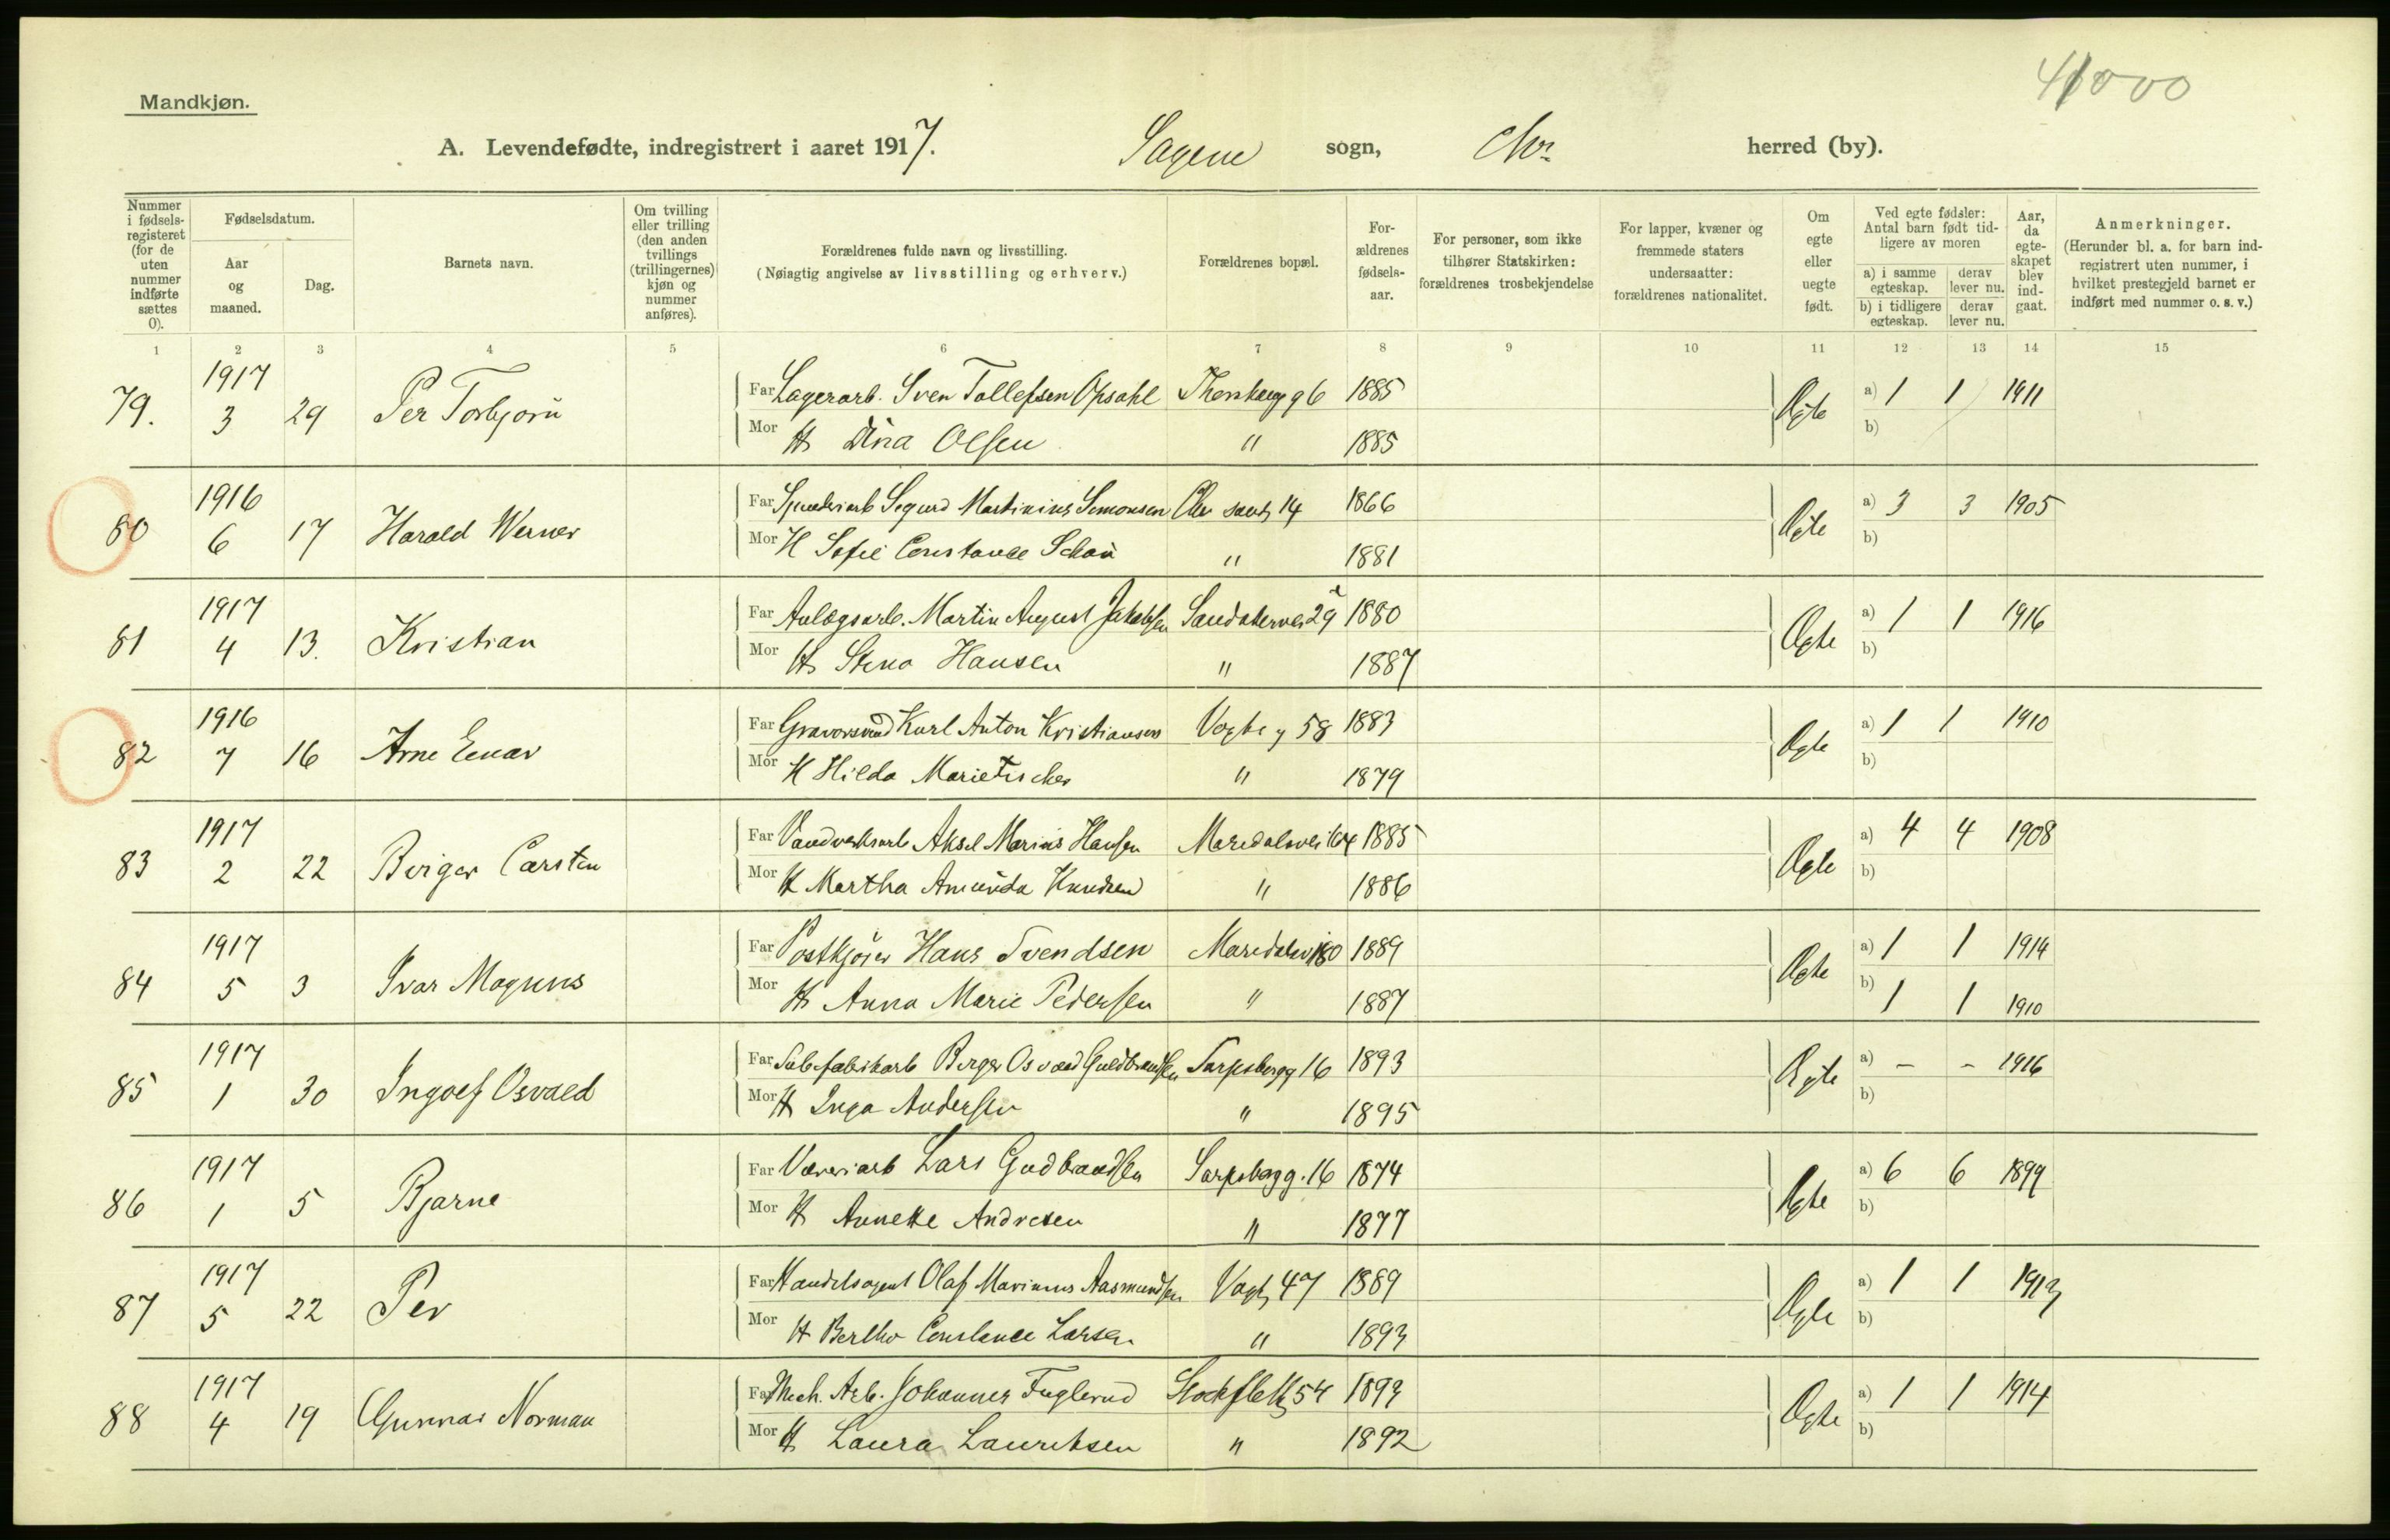 Mandkjøn.
A. Levendefødte, indregistrert i aaret 1917. Sagene sogn, Chr. herred (by).
Nummer i fødselsregisteret (for de uten nummer indførte sættes 0).
Fødselsdatum.
Aar og maaned.
Dag.
Barnets navn.
Om tvilling eller trilling (den anden tvillings (trillingernes) kjøn og nummer anføres).
Forældrenes fulde navn og livsstilling.
(Nøiagtig angivelse av livsstilling og erhverv.)
Forældrenes bopæl.
Forældrenes fødselsaar.
For personer, som ikke tilhører Statskirken: forældrenes trosbekjendelse
For lapper, kvæner og fremmede staters undersaatter: forældrenes nationalitet.
Om egte eller uegte født.
Ved egte fødsler: Antal barn født tidligere av moren
a) i samme egteskap. derav lever nu.
b) i tidligere egteskap. derav lever nu.
Aar, da egteskapet blev indgaat.
Anmerkninger.
(Herunder bl. a. for barn indregistrert uten nummer, i hvilket prestegjeld barnet er indført med nummer o. s. v.)
1 2 3 4 5 6 7 8 9 10 11 12 13 14 15
79. 1917 3 29 Per Torbjørn Far Lagerarb. Sven Tollefsen Opsahl 1885 Egte a) 1 1 1911
Mor H Dina Olsen " 1885 b)
80 1916 6 17 Harald Werner Far Sigurd Martinius Simonsen 14 1866 Egte a) 3 3 1905
Mor H Sofie Constance " 1881 b)
81 1917 4 13. Kristian Far Anlægsarb. Martin August Jakobsen Sandakervei 29 1880 Egte a) 1 1 1916
Mor H Hansen " 1887 b)
82 1916 7 16 Arne Einar Far Karl Anton Kristiansen Vogts g 58 1883 Egte a) 1 1 1910
Mor H Hilda Marie " 1879 b)
83 1917 2 22 Birger Carsten Far Vandverksarb Aksel Marius Hansen Maridalsvei 164 1885 Egte a) 4 4 1908
Mor H Martha Amunda Knudsen " 1886 b)
84 1917 5 3 Ivar Magnus Far Postkjører Hans Svendsen 1889 Egte a) 1 1 1914
Mor H Anna Marie Pedersen " 1887 b) 1 1 1910
85 1917 1 30 Ingolf Osvald Far Birger Osvald Guldbrandsen Sarpsborgg 16 1893 Egte a) - - 1916
Mor H Inga Andersen " 1895 b)
86 1917 1 5 Bjarne Far Væveriarb Lars Gudbrandsen Sarpsborgg. 16 1874 Egte a) 6 6 1899
Mor H Annette Andresen " 1877 b)
87 1917 5 22 Per Far Handelsagent Olaf Marinius Aasmundsen Vogts 47 1889 Egte a) 1 1 1913
Mor H Bertha Constance Larsen " 1893 b)
88 1917 4 19 Gunnar Norman Far Mech. Arb. Johannes Fuglerud 54 1893 Egte a) 1 1 1914
Mor H Laura Lauritsen " 1892 b)